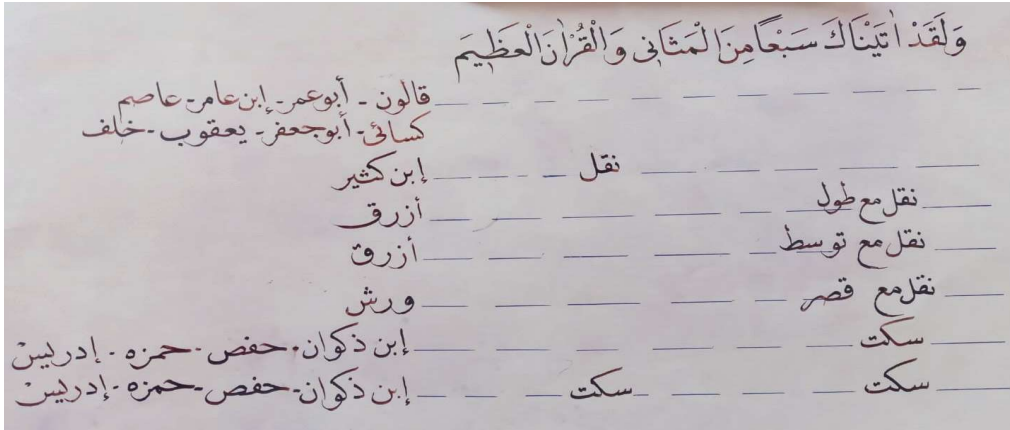 وَلَقَدْ اٰتَيْنَاكَ سَبْعًا مِنَ الْمَثَانِى وَالْقُرْاٰنَ الْعَظِيمَ
قالون - أبوعمر - إبن عامر - عاصم
كسائى - أبوجعفر - يعقوب - خلف
نقل إبن كثير
نقل مع طول أزرق
نقل مع توسط أزرق
نقل مع قصر ورش
سكت إبن ذكوان - حفص - حمزه - إدريس
سكت سكت إبن ذكوان - حفص - حمزه - إدريس